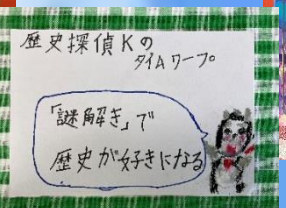 歴史探偵Kの
タイムワープ
「謎解き」で
歴史が好きになる